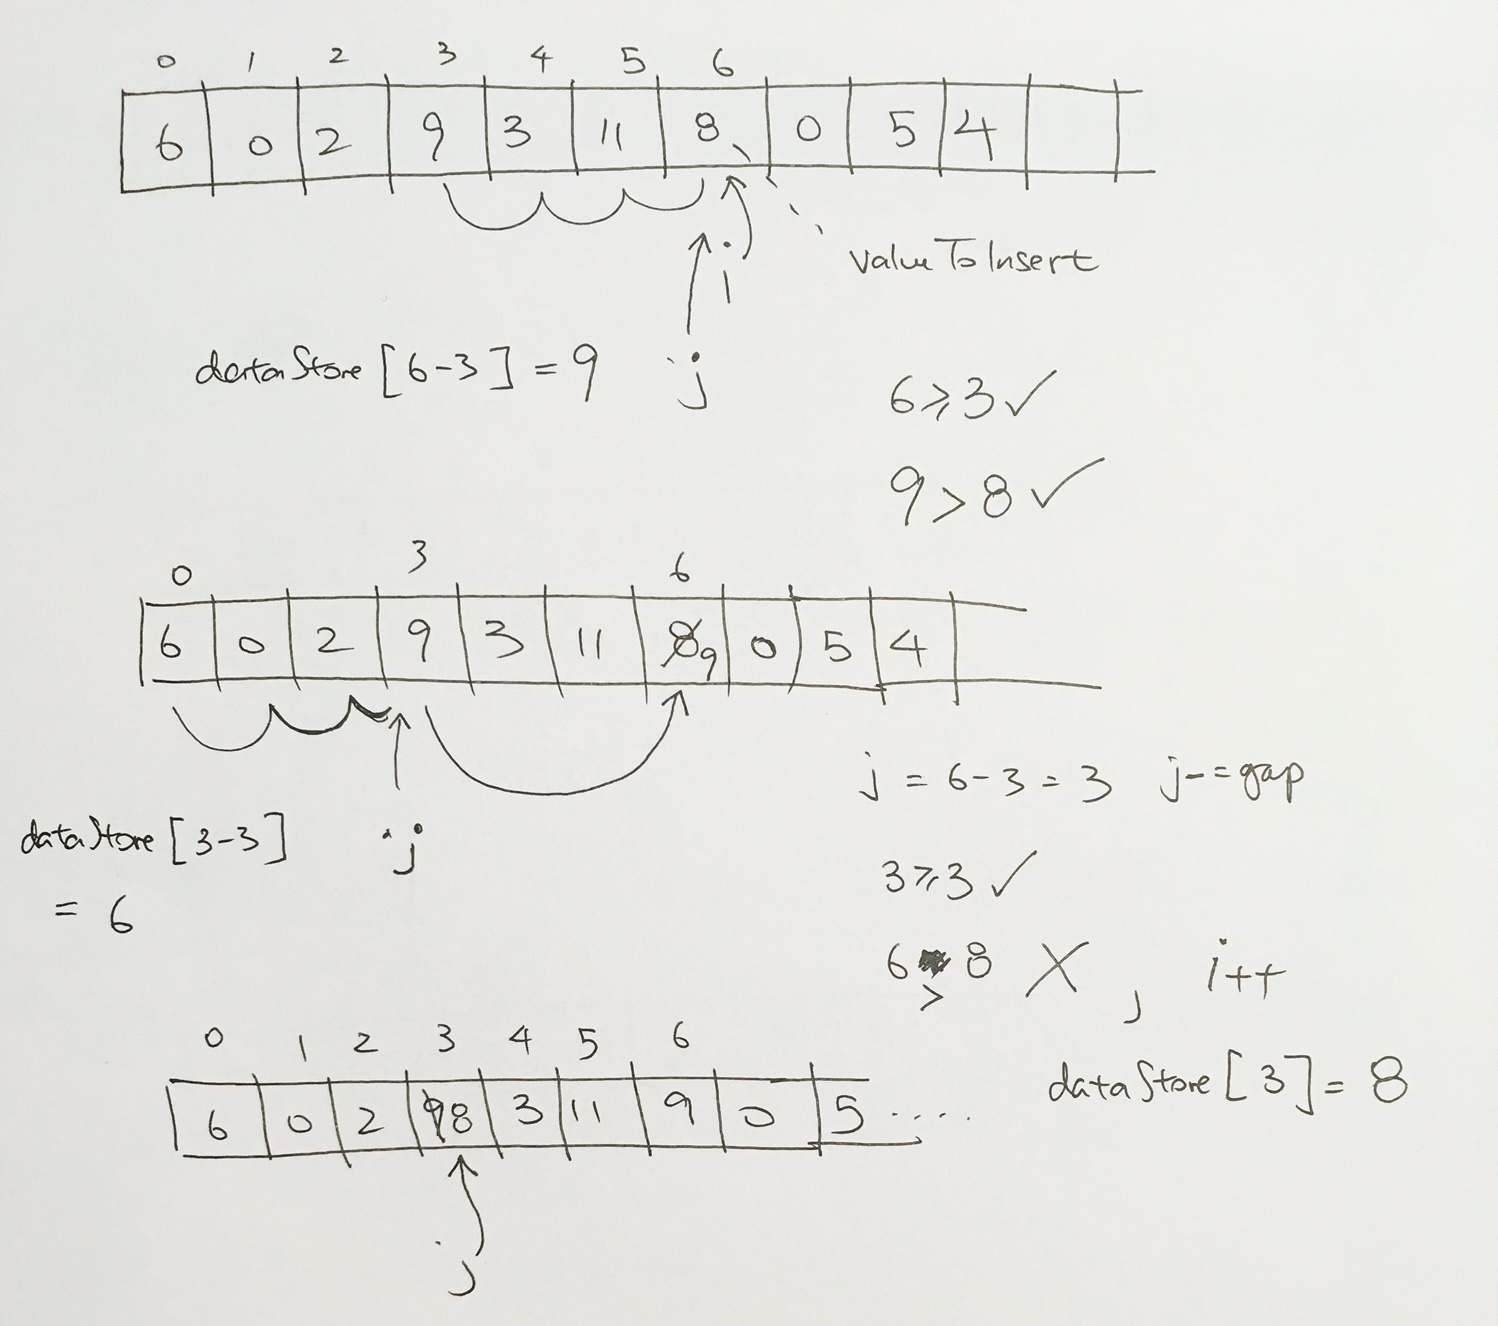 0 1 2 3 4 5 6
6 0 2 9 3 11 8 0 5 4
i
valueToInsert
dataStore[6-3]=9 j
6≥3✓
9>8✓
0 3 6
6 0 2 9 3 11 8 9 0 5 4
j = 6-3=3 j-=gap
dataStore[3-3] j
3≥3✓
= 6
6 > 8 X, i++
0 1 2 3 4 5 6
dataStore[3]=8
6 0 2 9 8 3 11 9 0 5 .....
j